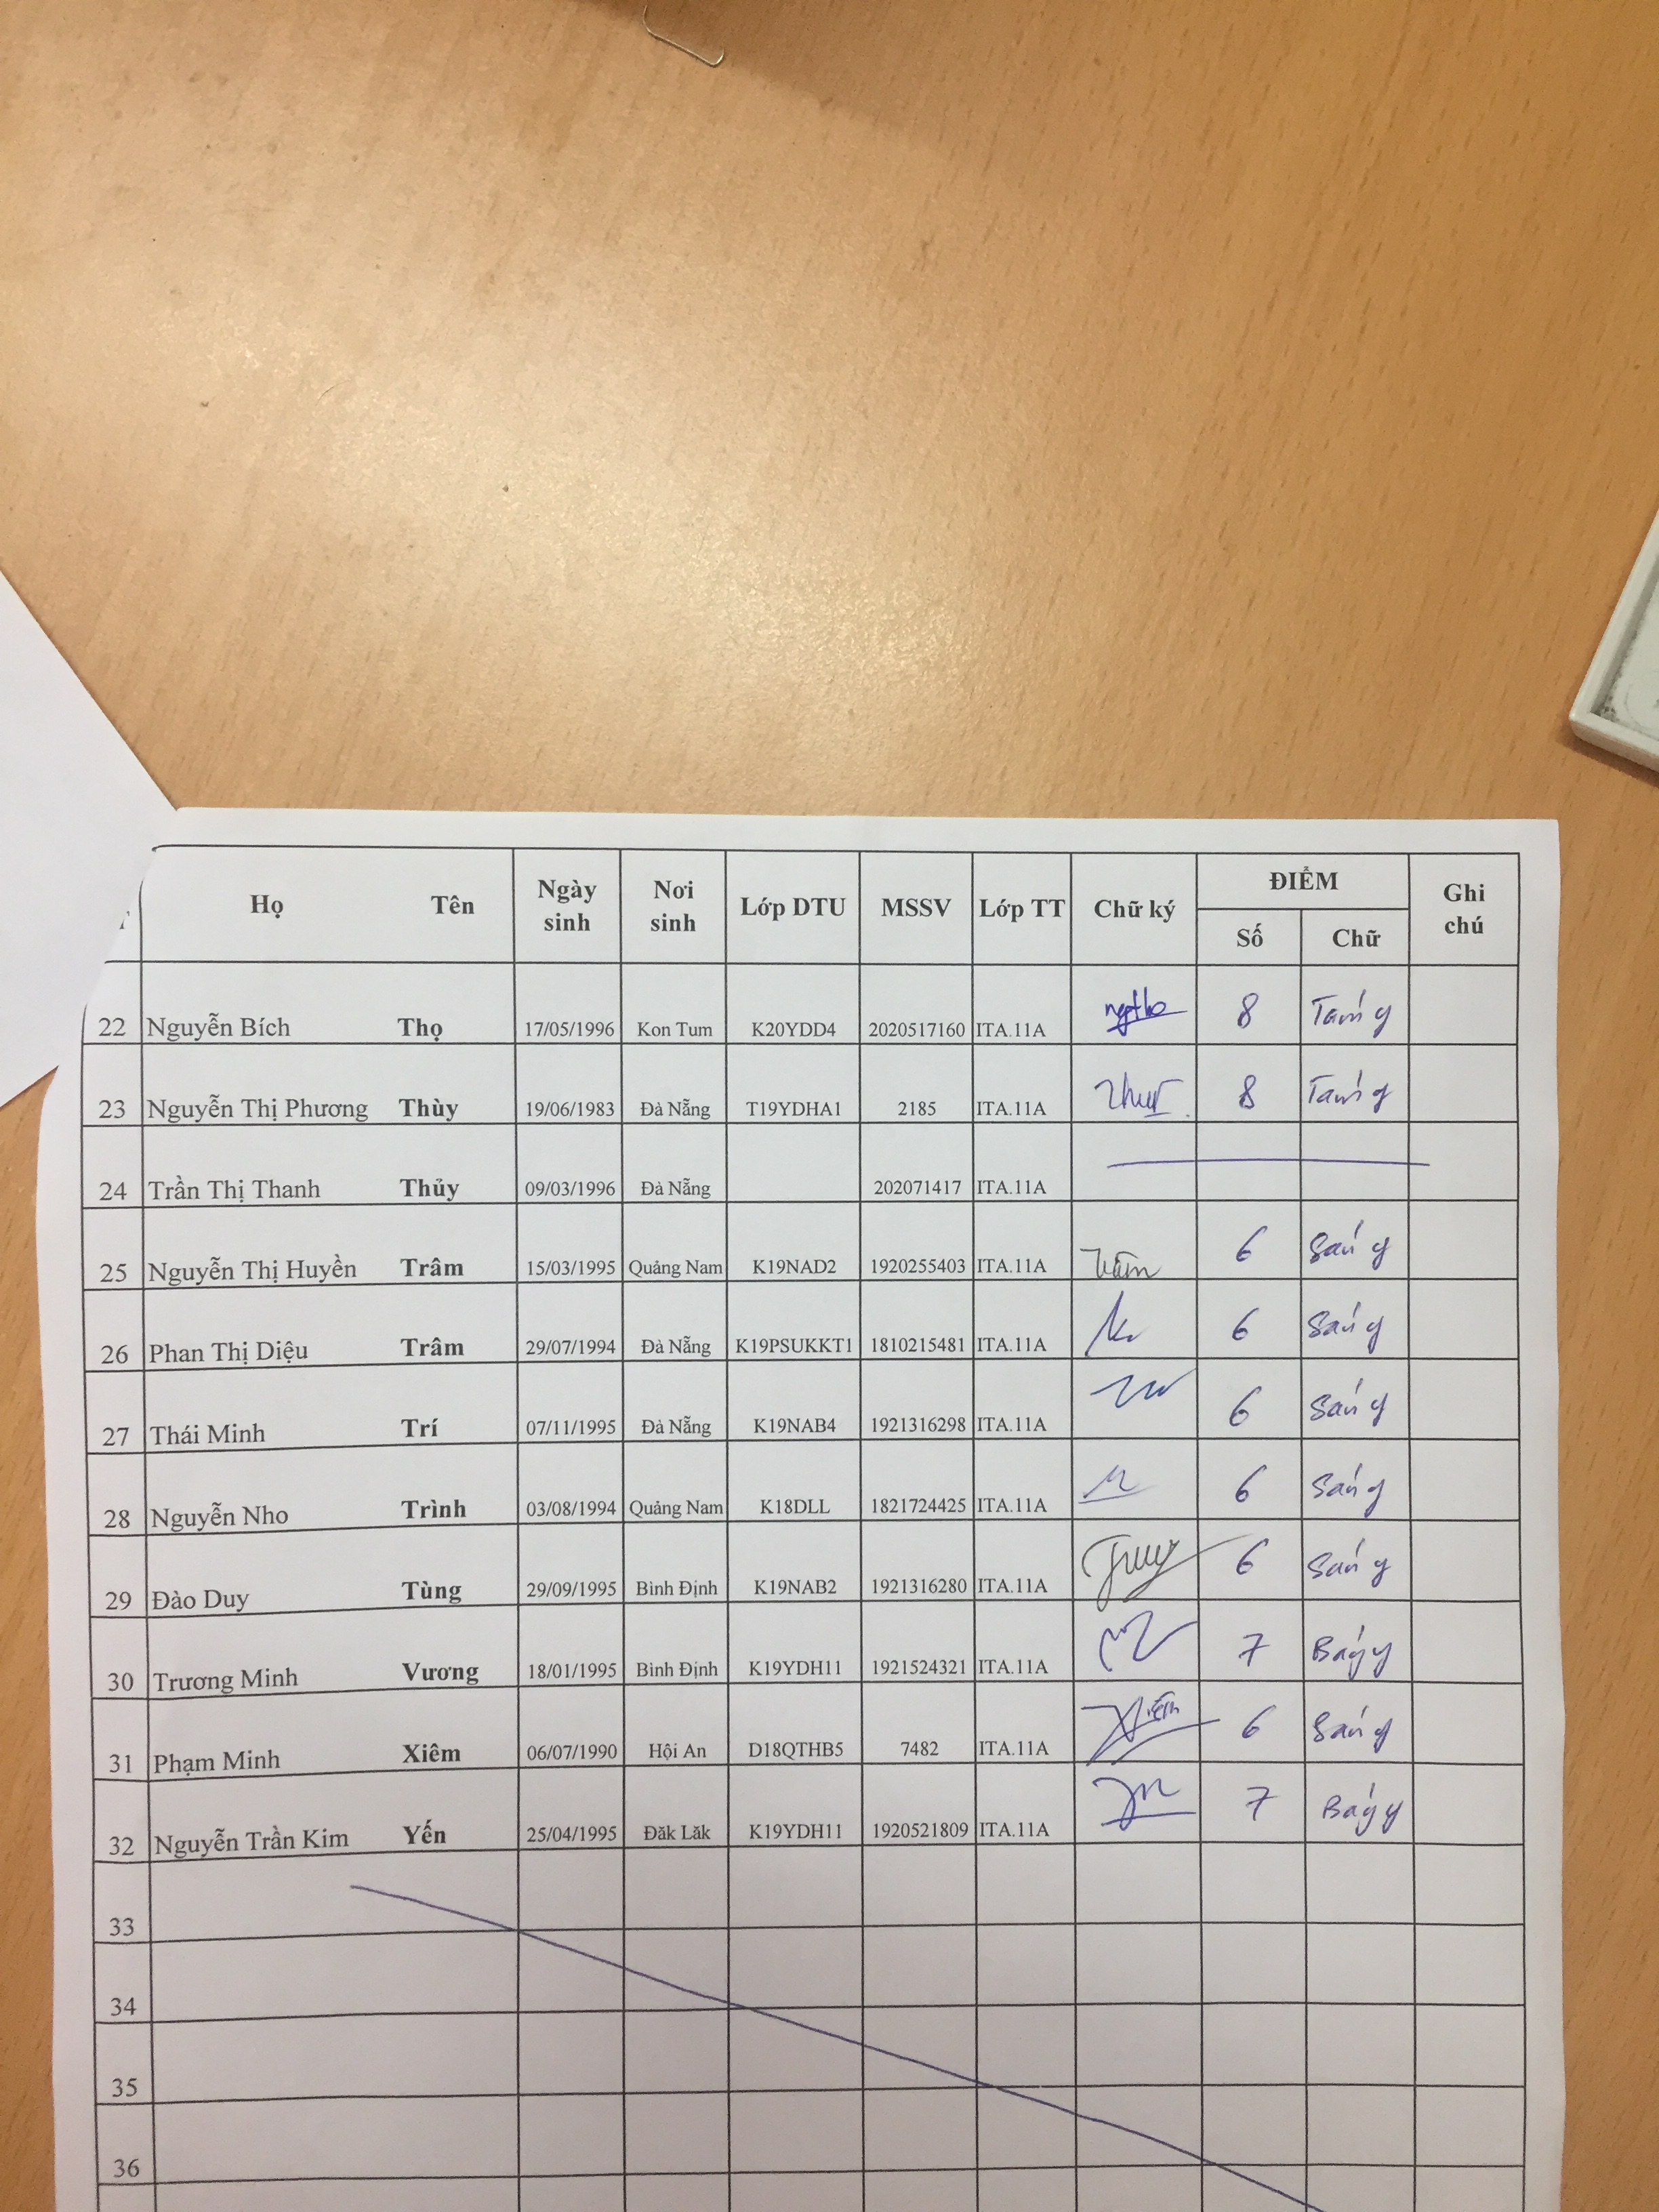 Họ Tên Ngày sinh Nơi sinh Lớp DTU MSSV Lớp TT Chữ ký ĐIỂM Ghi chú
Số Chữ
22 Nguyễn Bích Thọ 17/05/1996 Kon Tum K20YDD4 2020517160 ITA.11A ngtho 8 Tám
23 Nguyễn Thị Phương Thùy 19/06/1983 Đà Nẵng T19YDHA1 2185 ITA.11A 8 Tám
24 Trần Thị Thanh Thủy 09/03/1996 Đà Nẵng 202071417 ITA.11A
25 Nguyễn Thị Huyền Trâm 15/03/1995 Quảng Nam K19NAD2 1920255403 ITA.11A Trâm 6 Sáu
26 Phan Thị Diệu Trâm 29/07/1994 Đà Nẵng K19PSUKKT1 1810215481 ITA.11A 6 Sáu
27 Thái Minh Trí 07/11/1995 Đà Nẵng K19NAB4 1921316298 ITA.11A 6 Sáu
28 Nguyễn Nho Trình 03/08/1994 Quảng Nam K18DLL 1821724425 ITA.11A 6 Sáu
29 Đào Duy Tùng 29/09/1995 Bình Định K19NAB2 1921316280 ITA.11A 6 Sáu
30 Trương Minh Vương 18/01/1995 Bình Định K19YDH11 1921524321 ITA.11A 7 Bảy
31 Phạm Minh Xiêm 06/07/1990 Hội An D18QTHB5 7482 ITA.11A Xiêm 6 Sáu
32 Nguyễn Trần Kim Yến 25/04/1995 Đăk Lăk K19YDH11 1920521809 ITA.11A 7 Bảy
33
34
35
36